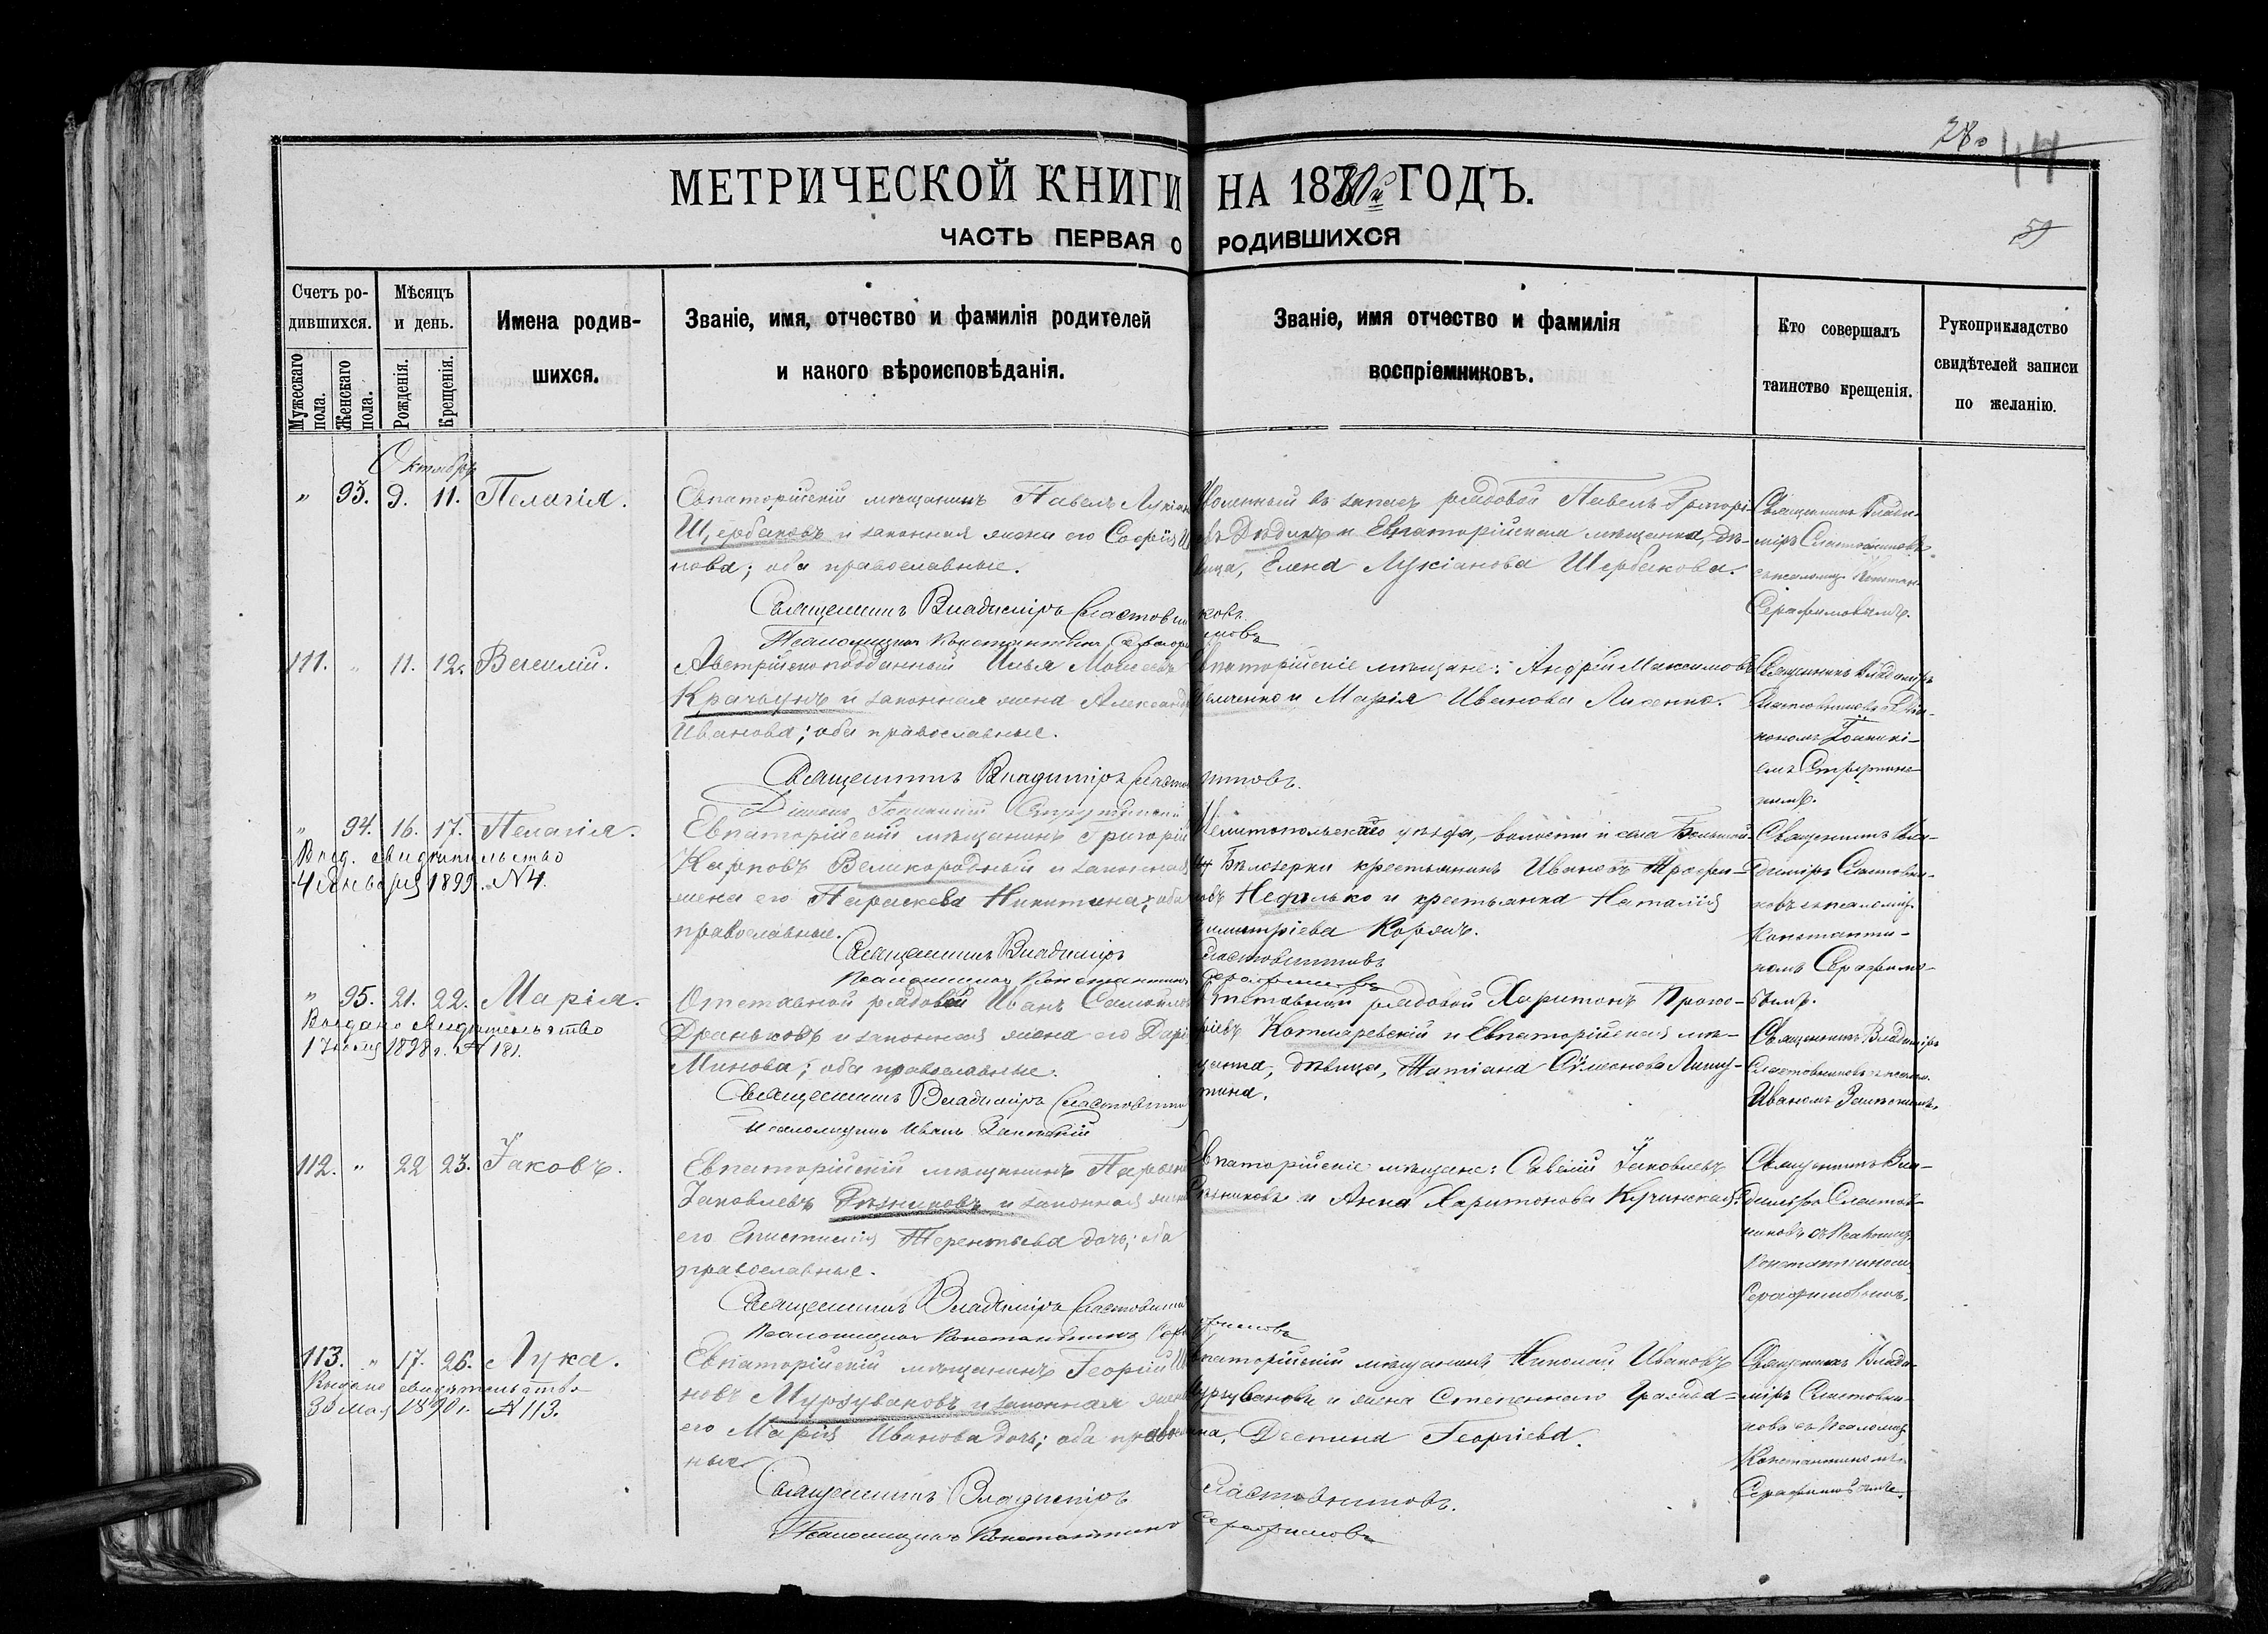 28.
44
МЕТРИЧЕСКОЙ КНИГИ НА 1880й ГОДЪ.
ЧАСТЬ ПЕРВАЯ О РОДИВШИХСЯ
Счетъ родившихся.
Мужескаго пола.
Женскаго пола.
Мѣсяцъ и день.
Рожденія.
Крещенія.
Имена родив-
шихся.
Званіе, имя, отчество и фамилія родителей
и какого вѣроисповѣданія.
Званіе, имя отчество и фамилія
воспріемниковъ.
Кто совершалъ
таинство крещенія.
Рукоприкладство
свидѣтелей записи
по желанію.
Октябрь
" 93. 9. 11. Пелагія.
Евпаторійскій мѣщанинъ Павелъ Лукіан
Щербаковъ и законная жена его Софія
нова; оба православные.
Священникъ Владиміръ Сластовни
Псаломщикъ Константинъ Серафи
воленный въ запасъ рядовой Павелъ Григорі-
евъ Дѣдинъ и Евпаторійская мѣщанка, дѣ-
вица, Елена Лукіанова Щербакова.
ковъ
мовъ
Священникъ Влади-
міръ Сластовниковъ
съ псаломщ. Констан.
Серафимовымъ.
111. " 11. 12. Василій.
Австрійскоподданный Илья Моисеевъ
Крачунъ и законная жена Александ
Иванова; оба православные.
Священникъ Владиміръ Сласто
Діаконъ Іоанникій
впаторійскіе мѣщане: Андрей Максимовъ
и Марія Иванова Лисенко.
вниковъ.
Священникъ Владиміръ
Сластовниковъ съ Діа-
кономъ Іоанникі-
емъ
" 94. 16. 17. Пелагія.
Выд. свидѣтельство
4 Января 1899. №4.
Евпаторійскій мѣщанинъ Григорій
Карповъ Великородный и законная
жена его Параскева Никитина; оба
православные.
Священникъ Владиміръ
Псаломщикъ Константинъ
Мелитопольскаго уѣзда, волости и села Большой
Бѣлозерки крестьянинъ Иванъ Трофи-
мовъ Недилько и крестьянка Наталія
Димитріева Корякъ.
Сластовниковъ
Серафимовъ
Священникъ Вла-
диміръ Сластовни-
ковъ съ псаломщ.
Константи-
номъ Серафимо-
вымъ.
" 95. 21. 22. Марія.
Выдано свидѣтельство
1 Іюля 1898 г. № 181.
Отставной рядовой Иванъ Самойло
Дреньковъ и законная жена его Дарі
Минова; оба православные.
Священникъ Владиміръ Сластовник
Псаломщикъ Иванъ
Отставной рядовой Харитонъ Проко-
фіевъ Котляревскій и Евпаторійская мѣ-
щанка, дѣвица, Татіана Симеонова
тина.
Священникъ Владиміръ
Сластовниковъ съ псалом.
Иваномъ
112. " 22 23. Іаковъ.
Евпаторійскій мѣщанинъ Парфен
Іаковлевъ Рѣзниковъ и законная жена
его Епистимія Терентьева дочь; оба
православные.
Священникъ Владиміръ Сластовни
Псаломщикъ Константинъ Сера
Евпаторійскіе мѣщане: Савелій Іаковлевъ
Рѣзниковъ и Анна Харитонова Кучинская.
фимовъ
Священникъ Вла-
диміръ Сластов-
никовъ съ псаломщ.
Константиномъ
Серафимовымъ.
113. " 17. 26. Лука.
Выдано свидѣтельство
30 Мая 1890 г. № 113.
Евпаторійскій мѣщанинъ Георгій Ива
новъ Мурзувановъ и законная жена
его Марія Иванова дочь; оба правосла
ные.
Священникъ Владиміръ
Псаломщикъ Константинъ
Евпаторійскій мѣщанинъ Николай Ивановъ
Мурзувановъ и жена Степеннаго Гражда-
нина, Деспина Георгіева.
Сластовниковъ.
Серафимовъ
Священникъ Влади-
міръ Сластовни-
ковъ съ псаломщ.
Константиномъ
Серафимовымъ.